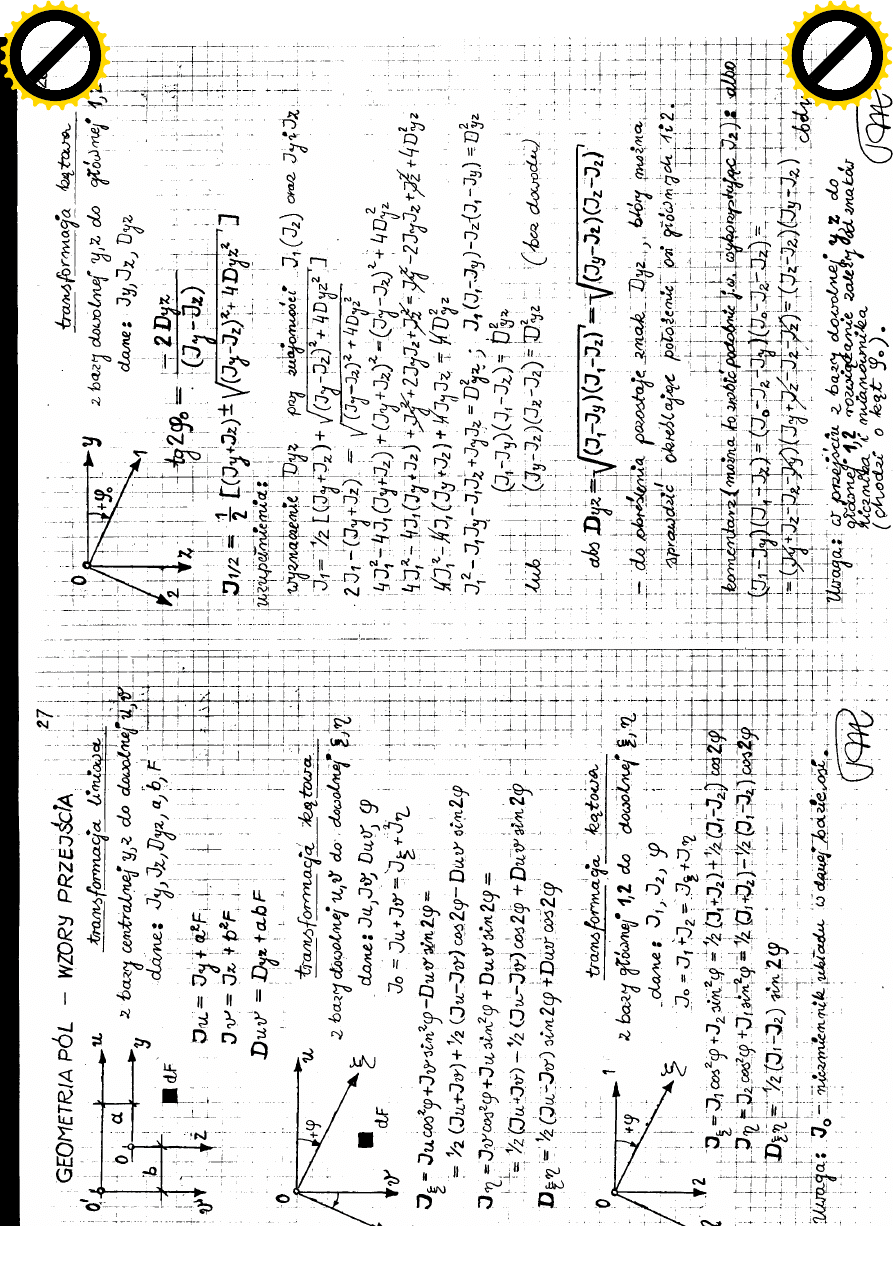 27
GEOMETRIA PÓL – WZORY PRZEJŚCIA
transformacja liniowa
z bazy centralnej y,z do dowolnej u,v
dane: Jy, Jz, Dyz, a, b, F
O'
u
a
O
y
b
z
v
dF
Ju = Jy + a²F
Jv = Jz + b²F
Duv = Dyz + abF
transformacja kątowa
z bazy dowolnej u,v do dowolnej ξ,η
dane: Ju, Jv, Duv, φ
J₀ = Ju + Jv = Jξ + Jη
O
u
+φ
ξ
dF
v
Jξ = Ju cos²φ + Jv sin²φ – Duv sin2φ =
= ½ (Ju+Jv) + ½ (Ju–Jv) cos2φ – Duv sin2φ
Jη = Jv cos²φ + Ju sin²φ + Duv sin2φ =
= ½ (Ju+Jv) – ½ (Ju–Jv) cos2φ + Duv sin2φ
Dξη = ½ (Ju–Jv) sin2φ + Duv cos2φ
transformacja kątowa
z bazy głównej 1,2 do dowolnej ξ,η
dane: J₁, J₂, φ
J₀ = J₁ + J₂ = Jξ + Jη
O
1
+φ
ξ
2
η
Jξ = J₁cos²φ + J₂ sin²φ = ½ (J₁+J₂) + ½ (J₁–J₂) cos2φ
Jη = J₂cos²φ + J₁sin²φ = ½ (J₁+J₂) – ½ (J₁–J₂) cos2φ
Dξη = ½ (J₁–J₂) sin2φ
Uwaga: J₀ – niezmiennik układu w danej bazie osi.
transformacja kątowa
z bazy dowolnej y,z do głównej 1,2
dane: Jy, Jz, Dyz
O
y
+φ₀
1
z
2
tg2φ₀ = –2Dyz / (Jy–Jz)
J1/2 = ½ [(Jy+Jz) ± √(Jy–Jz)² + 4Dyz²]
uzupełnienia:
wyznaczenie Dyz przy znajomości J₁ (J₂) oraz Jy i Jz
J₁ = ½ [(Jy+Jz) + √(Jy–Jz)² + 4Dyz²]
2J₁ – (Jy+Jz) = √(Jy–Jz)² + 4Dyz²
4J₁² – 4J₁(Jy+Jz) + (Jy+Jz)² = (Jy–Jz)² + 4D²yz
4J₁² – 4J₁(Jy+Jz) + Jy² + 2JyJz + Jz² = Jy² – 2JyJz + Jz² + 4D²yz
4J₁² – 4J₁(Jy+Jz) + 4JyJz = 4D²yz
J₁² – J₁Jy – J₁Jz + JyJz = D²yz ; J₁(J₁–Jy) – Jz(J₁–Jy) = D²yz
(J₁–Jy)(J₁–Jz) = D²yz
lub (Jy–J₂)(Jz–J₂) = D²yz (bez dowodu)
abs Dyz = √(J₁–Jy)(J₁–Jz) = √(Jy–J₂)(Jz–J₂)
– do określenia pozostaje znak Dyz, który można
sprawdzić określając położenie osi głównych 1 i 2.
komentarz (można to zrobić podobnie j.w. wykorzystując J₂): albo
(J₁–Jy)(J₁–Jz) = (J₀–J₂–Jy)(J₀–J₂–Jz) =
= (Jy+Jz–J₂–Jy)(Jy+Jz–J₂–Jz) = (Jz–J₂)(Jy–J₂)
Uwaga: w przejściu z bazy dowolnej y,z do
głównej 1,2 rozwiązanie zależy od znaków
licznika i mianownika
(chodzi o kąt φ₀).